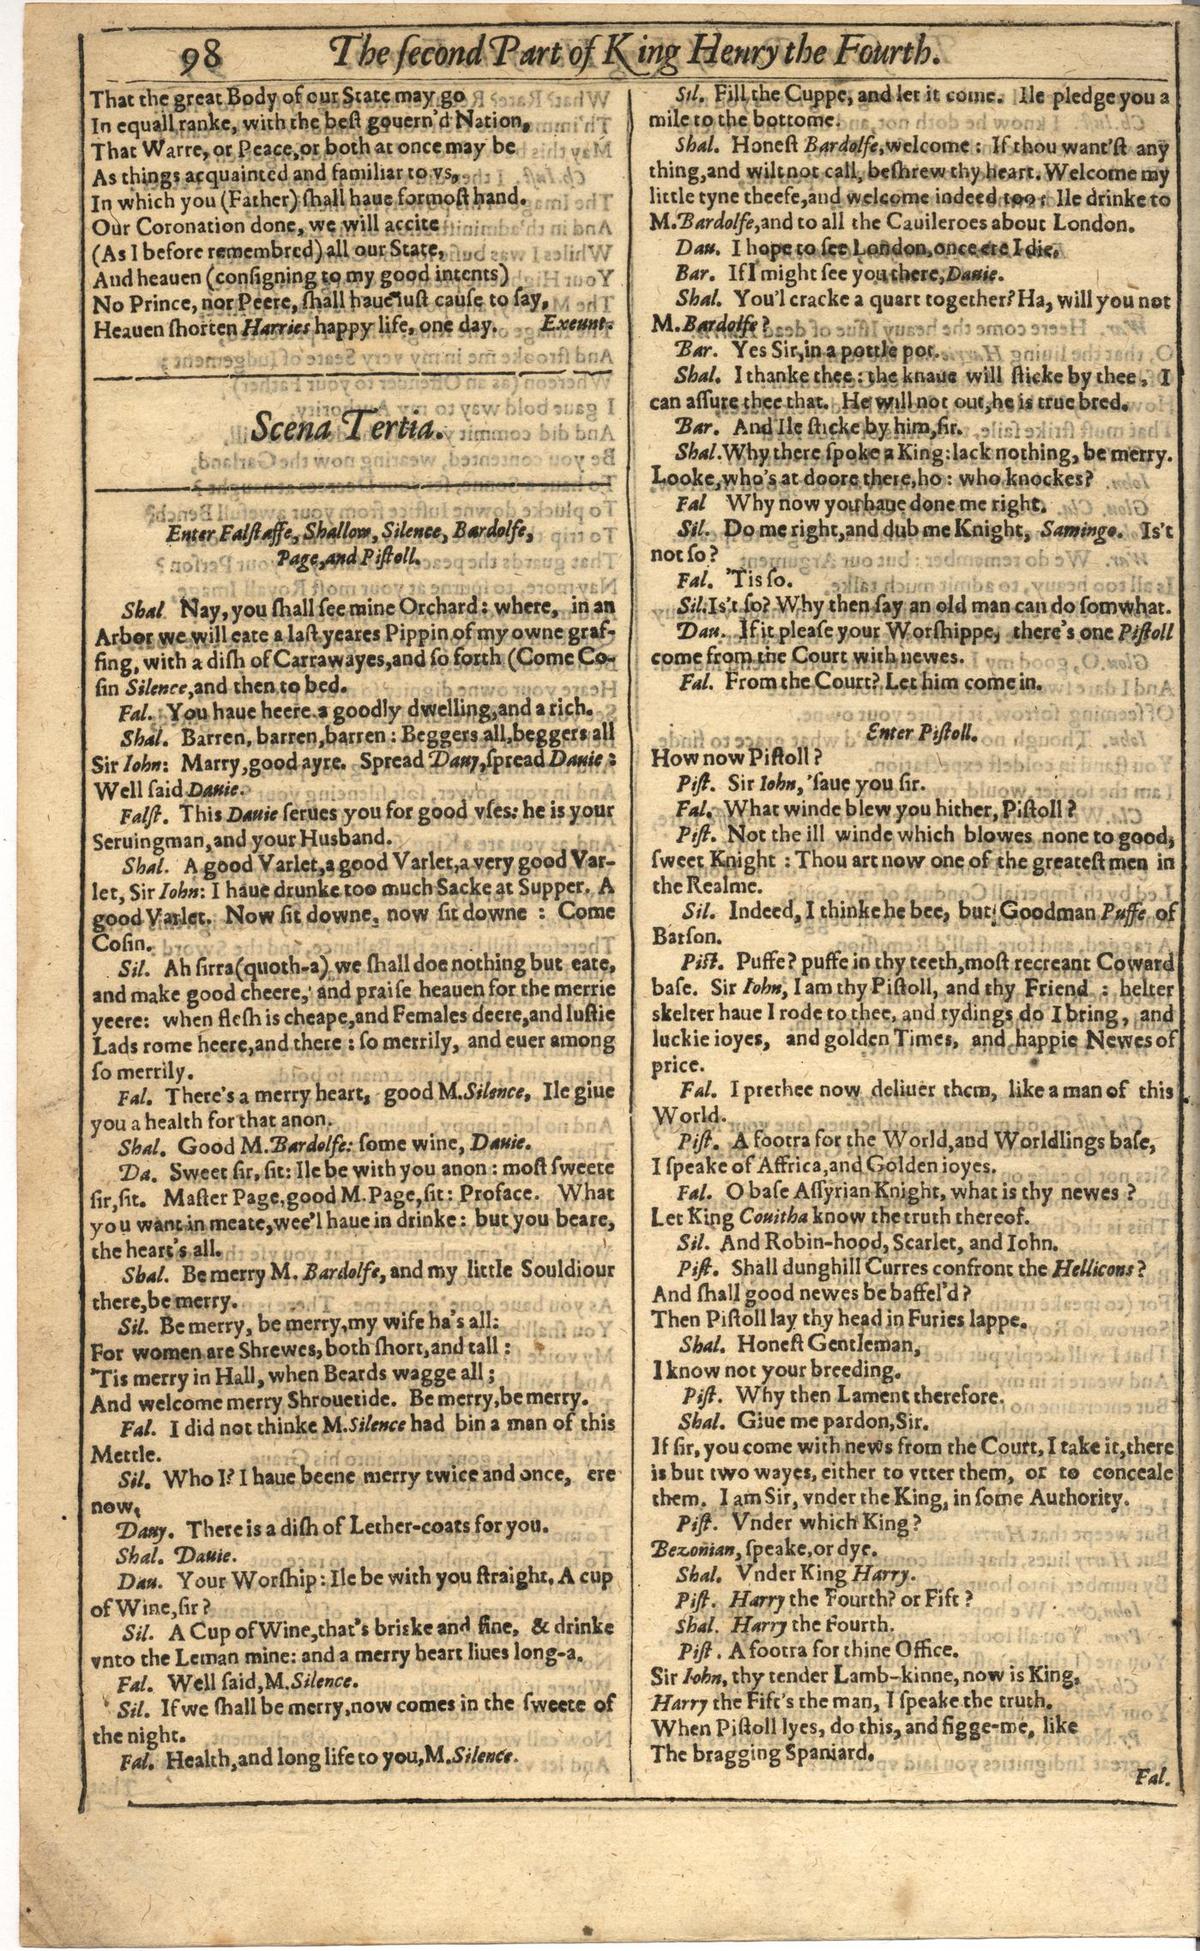 98
The ſecond Part of King Henry the Fourth.
That the great Body of our State may go
In equall ranke, with the beſt gouern'd Nation,
That Warre, or Peace, or both at once may be
As things acquainted and familiar to vs,
In which you (Father) ſhall haue formoſt hand.
Our Coronation done, we will accite
(As I before remembred) all our State,
And heauen (conſigning to my good intents)
No Prince, nor Peere, ſhall haue iuſt cauſe to ſay,
Heauen ſhorten Harries happy life, one day. Exeunt.
Scena Tertia.
Enter Falſtaffe, Shallow, Silence, Bardolfe,
Page, and Piſtoll.
Shal Nay, you ſhall ſee mine Orchard: where, in an
Arbor we will eate a laſt yeares Pippin of my owne graf-
fing, with a diſh of Carrawayes, and ſo forth (Come Co-
ſin Silence, and then to bed.
Fal. You haue heere a goodly dwelling, and a rich.
Shal. Barren, barren, barren: Beggers all, beggers all
Sir Iohn: Marry, good ayre. Spread Dauy, ſpread Dauie:
Well ſaid Dauie.
Falſt. This Dauie ſerues you for good vſes: he is your
Seruingman, and your Husband.
Shal. A good Varlet, a good Varlet, a very good Var-
let, Sir Iohn: I haue drunke too much Sacke at Supper. A
good Varlet. Now ſit downe, now ſit downe: Come
Coſin.
Sil. Ah ſirra (quoth-a) we ſhall doe nothing but eate,
and make good cheere, and praiſe heauen for the merrie
yeere: when fleſh is cheape, and Females deere, and luſtie
Lads rome heere, and there: ſo merrily, and euer among
ſo merrily.
Fal. There's a merry heart, good M. Silence, Ile giue
you a health for that anon.
Shal. Good M. Bardolfe: ſome wine, Dauie.
Da. Sweet ſir, ſit: Ile be with you anon: moſt ſweete
ſir, ſit. Maſter Page, good M. Page, ſit: Proface. What
you want in meate, wee'l haue in drinke: but you beare,
the heart's all.
Shal. Be merry M. Bardolfe, and my little Souldiour
there, be merry.
Sil. Be merry, be merry, my wife ha's all:
For women are Shrewes, both ſhort, and tall:
'Tis merry in Hall, when Beards wagge all;
And welcome merry Shrouetide. Be merry, be merry.
Fal. I did not thinke M. Silence had bin a man of this
Mettle.
Sil. Who I? I haue beene merry twice and once, ere
now.
Dauy. There is a diſh of Lether-coats for you.
Shal. Dauie.
Dau. Your Worſhip: Ile be with you ſtraight. A cup
of Wine, ſir?
Sil. A Cup of Wine, that's briske and fine, & drinke
vnto the Leman mine: and a merry heart liues long-a.
Fal. Well ſaid, M. Silence.
Sil. If we ſhall be merry, now comes in the ſweete of
the night.
Fal. Health, and long life to you, M. Silence.
Sil. Fill the Cuppe, and let it come. Ile pledge you a
mile to the bottome.
Shal. Honeſt Bardolfe, welcome: If thou want'ſt any
thing, and wilt not call, beſhrew thy heart. Welcome my
little tyne theefe, and welcome indeed too: Ile drinke to
M. Bardolfe, and to all the Cauileroes about London.
Dau. I hope to ſee London, once ere I die.
Bar. If I might ſee you there, Dauie.
Shal. You'l cracke a quart together? Ha, will you not
M. Bardolfe?
Bar. Yes Sir, in a pottle pot.
Shal. I thanke thee: the knaue will ſticke by thee, I
can aſſure thee that. He will not out, he is true bred.
Bar. And Ile ſticke by him, ſir.
Shal. Why there ſpoke a King: lack nothing, be merry.
Looke, who's at doore there, ho: who knockes?
Fal Why now you haue done me right.
Sil. Do me right, and dub me Knight, Samingo. Is't
not ſo?
Fal. 'Tis ſo.
Sil. Is't ſo? Why then ſay an old man can do ſomwhat.
Dau. If it pleaſe your Worſhippe, there's one Piſtoll
come from the Court with newes.
Fal. From the Court? Let him come in.
Enter Piſtoll.
How now Piſtoll?
Piſt. Sir Iohn, 'ſaue you ſir.
Fal. What winde blew you hither, Piſtoll?
Piſt. Not the ill winde which blowes none to good,
ſweet Knight: Thou art now one of the greateſt men in
the Realme.
Sil. Indeed, I thinke he bee, but Goodman Puffe of
Barſon.
Piſt. Puffe? puffe in thy teeth, moſt recreant Coward
baſe. Sir Iohn, I am thy Piſtoll, and thy Friend: helter
skelter haue I rode to thee, and tydings do I bring, and
luckie ioyes, and golden Times, and happie Newes of
price.
Fal. I prethee now deliuer them, like a man of this
World.
Piſt. A footra for the World, and Worldlings baſe,
I ſpeake of Affrica, and Golden ioyes.
Fal. O baſe Aſſyrian Knight, what is thy newes?
Let King Couitha know the truth thereof.
Sil. And Robin-hood, Scarlet, and Iohn.
Piſt. Shall dunghill Curres confront the Hellicons?
And ſhall good newes be baffel'd?
Then Piſtoll lay thy head in Furies lappe.
Shal. Honeſt Gentleman,
I know not your breeding.
Piſt. Why then Lament therefore.
Shal. Giue me pardon, Sir.
If ſir, you come with news from the Court, I take it, there
is but two wayes, either to vtter them, or to conceale
them. I am Sir, vnder the King, in ſome Authority.
Piſt. Vnder which King?
Bezonian, ſpeake, or dye.
Shal. Vnder King Harry.
Piſt. Harry the Fourth? or Fift?
Shal. Harry the Fourth.
Piſt. A footra for thine Office.
Sir Iohn, thy tender Lamb-kinne, now is King,
Harry the Fift's the man, I ſpeake the truth.
When Piſtoll lyes, do this, and figge-me, like
The bragging Spaniard.
Fal.